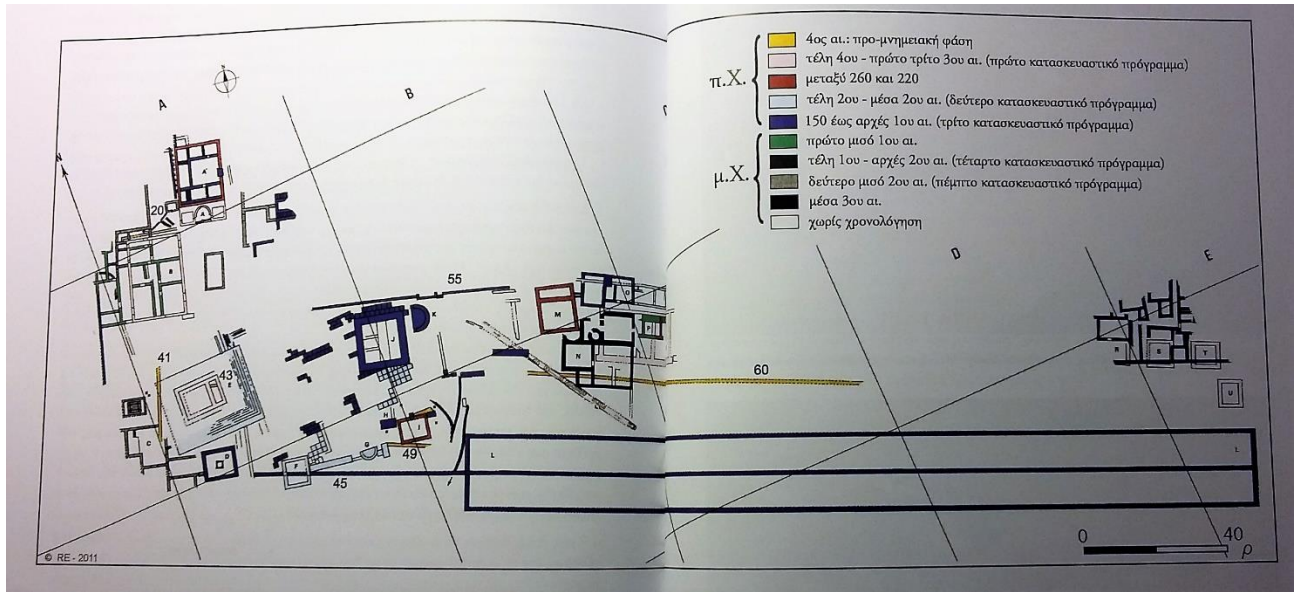 π.Χ.
4ος αι.: προ-μνημειακή φάση
τέλη 4ου - πρώτο τρίτο 3ου αι. (πρώτο κατασκευαστικό πρόγραμμα)
μεταξύ 260 και 220
τέλη 2ου - μέσα 2ου αι. (δεύτερο κατασκευαστικό πρόγραμμα)
150 έως αρχές 1ου αι. (τρίτο κατασκευαστικό πρόγραμμα)
μ.Χ.
πρώτο μισό 1ου αι.
τέλη 1ου - αρχές 2ου αι. (τέταρτο κατασκευαστικό πρόγραμμα)
δεύτερο μισό 2ου αι. (πέμπτο κατασκευαστικό πρόγραμμα)
μέσα 3ου αι.
χωρίς χρονολόγηση
A
B
D
E
N
20
A
55
K
J
M
O
P
N
41
43
E
60
R
S
T
U
C
D
F
G
H
I
49
45
L
L
0 40
ρ
© RE - 2011